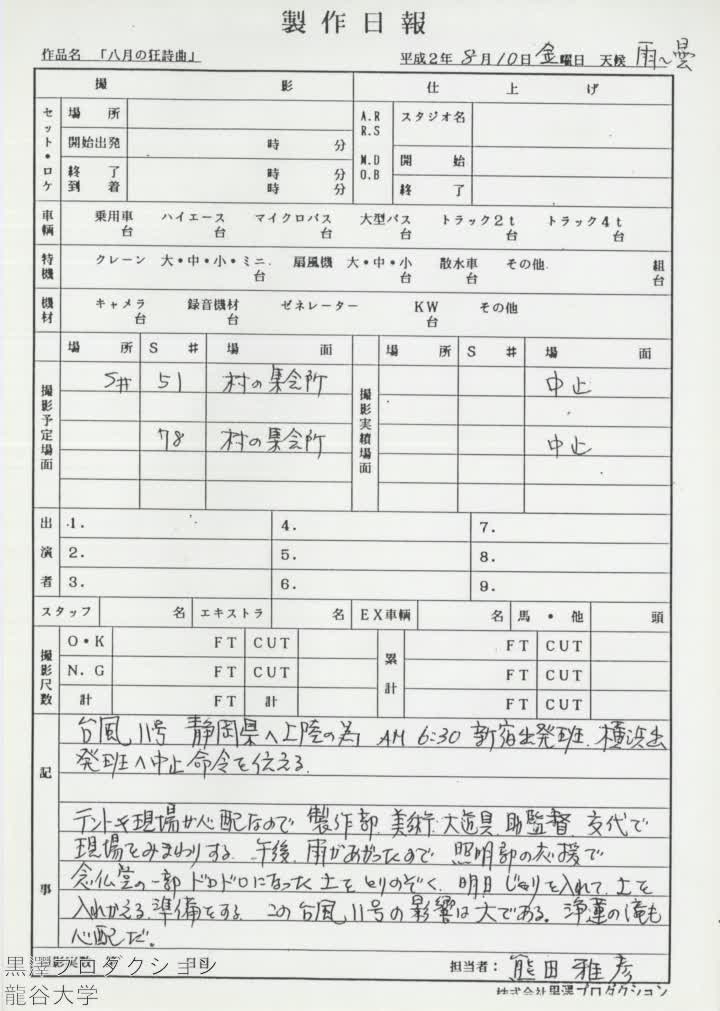 製作日報
作品名 「八月の狂詩曲」 平成2年 8月10日 金曜日 天候 雨〜曇
撮影 仕上げ
セット・ロケ 場所 A.R R.S M.D O.B スタジオ名
開始出発 時 分 開始
終了到着 時 分 時 分 終了
車輌 乗用車 台 ハイエース 台 マイクロバス 台 大型バス 台 トラック2t 台 トラック4t 台
特機 クレーン 大・中・小・ミニ 台 扇風機 大・中・小 台 散水車 台 その他 組 台
機材 キャメラ 台 録音機材 台 ゼネレーター KW 台 その他
場所 S# 場面 場所 S# 場面
撮影予定場面 S# 51 村の集会所 撮影実績場面 中止
78 村の集会所 中止
出演者 1. 4. 7.
2. 5. 8.
3. 6. 9.
スタッフ 名 エキストラ 名 EX車輌 名 馬・他 頭
撮影尺数 O・K FT CUT 累計 FT CUT
N.G FT CUT FT CUT
計 FT 計 FT CUT
記事
台風11号 静岡県へ上陸の為 AM 6:30 新宿出発班、横浜出
発班へ中止命令を伝える。
テントや現場が心配なので 製作部、美術、大道具、助監督、交代で
現場をみまわりする。午後、雨があがったので 照明部の応援で
念仏堂の一部 ドロドロになった土をとりのぞく、明日じゃりを入れて、土を
入れかえる準備をする。この台風11号の影響は大である。浄蓮の滝も
心配だ。
担当者: 熊田雅彦
株式会社黒澤プロダクション
黒澤プロダクション
龍谷大学